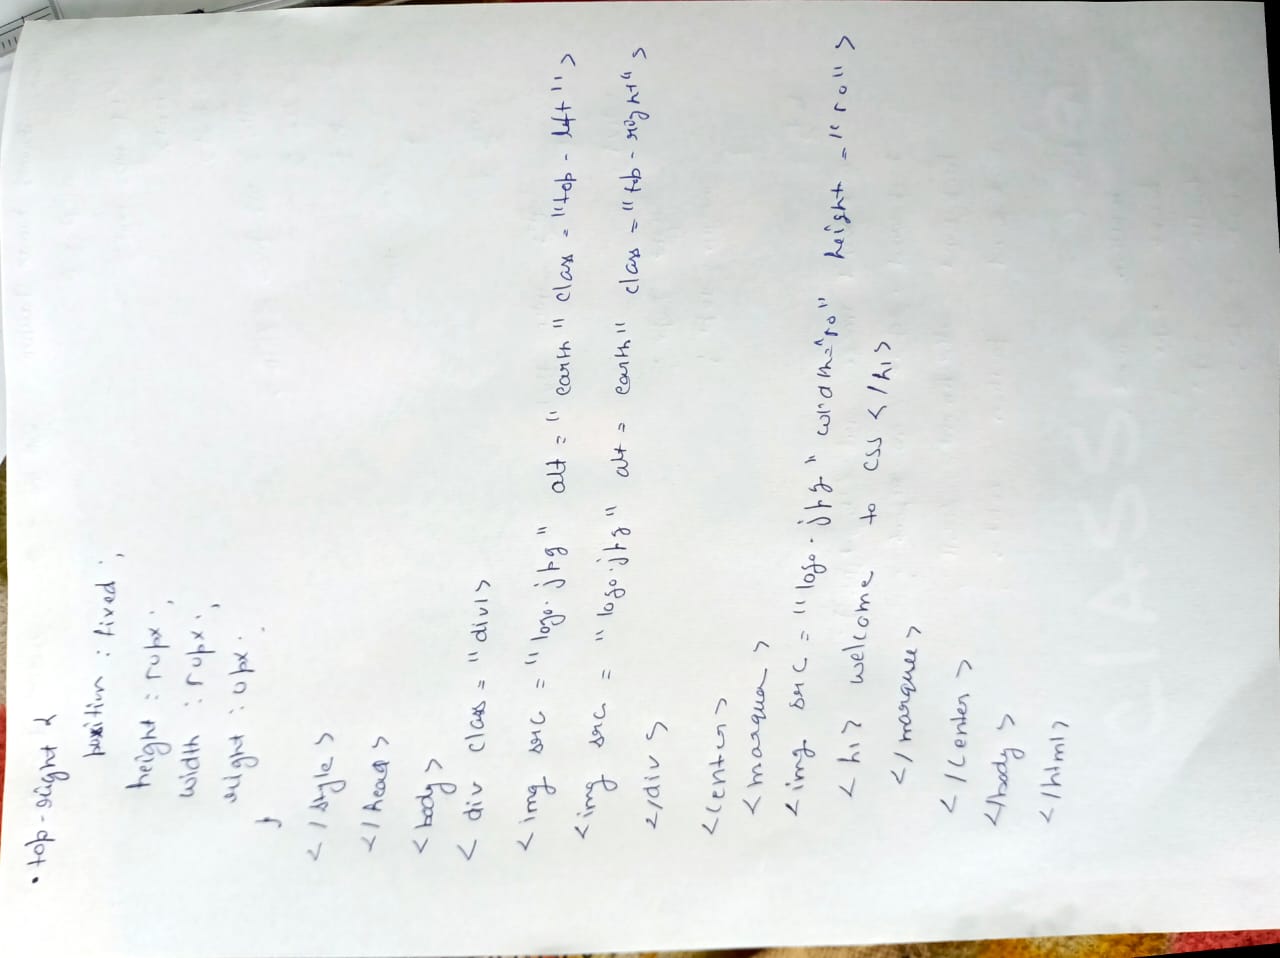 • top-right {
position : fixed ;
height : 50px ;
width : 50px ;
right : 0px ;
}
</style>
</head>
<body>
< div class = "div1>
<img src = "logo.jpg" alt = "earth" class = "top-left">
<img src = "logo.jpg" alt = earth" class = "top-right">
</div>
<center>
<marquee>
<img src = "logo.jpg" width="50" height = "50">
<h1> welcome to css </h1>
</marquee>
</center>
</body>
</html>
CLASS